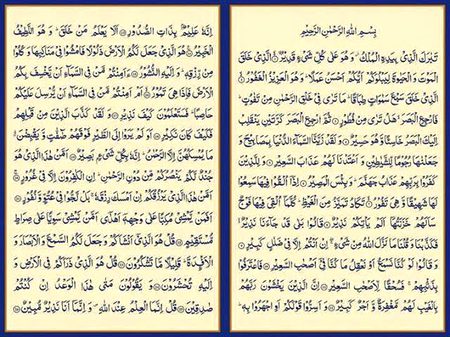 بِسْمِ اللّٰهِ الرَّحْمٰنِ الرَّحِيمِ
تَبَارَكَ الَّذِي بِيَدِهِ الْمُلْكُ وَهُوَ عَلٰى كُلِّ شَيْءٍ قَدِيرٌ۝ الَّذِي خَلَقَ
الْمَوْتَ وَالْحَيٰوةَ لِيَبْلُوَكُمْ اَيُّكُمْ اَحْسَنُ عَمَلًا وَهُوَ الْعَزِيزُ الْغَفُورُ۝
الَّذِي خَلَقَ سَبْعَ سَمٰوَاتٍ طِبَاقًا مَا تَرٰى فِي خَلْقِ الرَّحْمٰنِ مِنْ تَفَاوُتٍ
فَارْجِعِ الْبَصَرَ هَلْ تَرٰى مِنْ فُطُورٍ۝ ثُمَّ ارْجِعِ الْبَصَرَ كَرَّتَيْنِ يَنْقَلِبْ
اِلَيْكَ الْبَصَرُ خَاسِئًا وَهُوَ حَسِيرٌ۝ وَلَقَدْ زَيَّنَّا السَّمَاءَ الدُّنْيَا بِمَصَابِيحَ وَ
جَعَلْنَاهَا رُجُومًا لِلشَّيَاطِينِ وَاَعْتَدْنَا لَهُمْ عَذَابَ السَّعِيرِ۝ وَلِلَّذِينَ
كَفَرُوا بِرَبِّهِمْ عَذَابُ جَهَنَّمَ وَبِئْسَ الْمَصِيرُ۝ اِذَا اُلْقُوا فِيهَا سَمِعُوا
لَهَا شَهِيقًا وَهِيَ تَفُورُ۝ تَكَادُ تَمَيَّزُ مِنَ الْغَيْظِ كُلَّمَا اُلْقِيَ فِيهَا فَوْجٌ
سَاَلَهُمْ خَزَنَتُهَا اَلَمْ يَاْتِكُمْ نَذِيرٌ۝ قَالُوا بَلٰى قَدْ جَاءَنَا نَذِيرٌ
فَكَذَّبْنَا وَقُلْنَا مَا نَزَّلَ اللّٰهُ مِنْ شَيْءٍ اِنْ اَنْتُمْ اِلَّا فِي ضَلَالٍ كَبِيرٍ۝
وَقَالُوا لَوْ كُنَّا نَسْمَعُ اَوْ نَعْقِلُ مَا كُنَّا فِي اَصْحَابِ السَّعِيرِ۝ فَاعْتَرَفُوا
بِذَنْبِهِمْ فَسُحْقًا لِاَصْحَابِ السَّعِيرِ۝ اِنَّ الَّذِينَ يَخْشَوْنَ رَبَّهُمْ
بِالْغَيْبِ لَهُمْ مَغْفِرَةٌ وَاَجْرٌ كَبِيرٌ۝ وَاَسِرُّوا قَوْلَكُمْ اَوِ اجْهَرُوا بِهِ
اِنَّهُ عَلِيمٌ بِذَاتِ الصُّدُورِ۝ اَلَا يَعْلَمُ مَنْ خَلَقَ وَهُوَ اللَّطِيفُ
الْخَبِيرُ۝ هُوَ الَّذِي جَعَلَ لَكُمُ الْاَرْضَ ذَلُولًا فَامْشُوا فِي مَنَاكِبِهَا وَكُلُوا
مِنْ رِزْقِهِ وَاِلَيْهِ النُّشُورُ۝ ءَاَمِنْتُمْ مَنْ فِي السَّمَاءِ اَنْ يَخْسِفَ بِكُمُ
الْاَرْضَ فَاِذَا هِيَ تَمُورُ۝ اَمْ اَمِنْتُمْ مَنْ فِي السَّمَاءِ اَنْ يُرْسِلَ عَلَيْكُمْ
حَاصِبًا فَسَتَعْلَمُونَ كَيْفَ نَذِيرِ۝ وَلَقَدْ كَذَّبَ الَّذِينَ مِنْ قَبْلِهِمْ
فَكَيْفَ كَانَ نَكِيرِ۝ اَوَلَمْ يَرَوْا اِلَى الطَّيْرِ فَوْقَهُمْ صَافَّاتٍ وَيَقْبِضْنَ
مَا يُمْسِكُهُنَّ اِلَّا الرَّحْمٰنُ اِنَّهُ بِكُلِّ شَيْءٍ بَصِيرٌ۝ اَمَّنْ هٰذَا الَّذِي هُوَ
جُنْدٌ لَكُمْ يَنْصُرُكُمْ مِنْ دُونِ الرَّحْمٰنِ اِنِ الْكَافِرُونَ اِلَّا فِي غُرُورٍ۝
اَمَّنْ هٰذَا الَّذِي يَرْزُقُكُمْ اِنْ اَمْسَكَ رِزْقَهُ بَلْ لَجُّوا فِي عُتُوٍّ وَنُفُورٍ۝
اَفَمَنْ يَمْشِي مُكِبًّا عَلٰى وَجْهِهِ اَهْدٰى اَمَّنْ يَمْشِي سَوِيًّا عَلٰى صِرَاطٍ
مُسْتَقِيمٍ۝ قُلْ هُوَ الَّذِي اَنْشَاَكُمْ وَجَعَلَ لَكُمُ السَّمْعَ وَالْاَبْصَارَ وَ
الْاَفْئِدَةَ قَلِيلًا مَا تَشْكُرُونَ۝ قُلْ هُوَ الَّذِي ذَرَاَكُمْ فِي الْاَرْضِ وَ
اِلَيْهِ تُحْشَرُونَ۝ وَيَقُولُونَ مَتٰى هٰذَا الْوَعْدُ اِنْ كُنْتُمْ
صَادِقِينَ۝ قُلْ اِنَّمَا الْعِلْمُ عِنْدَ اللّٰهِ وَاِنَّمَا اَنَا نَذِيرٌ مُبِينٌ۝